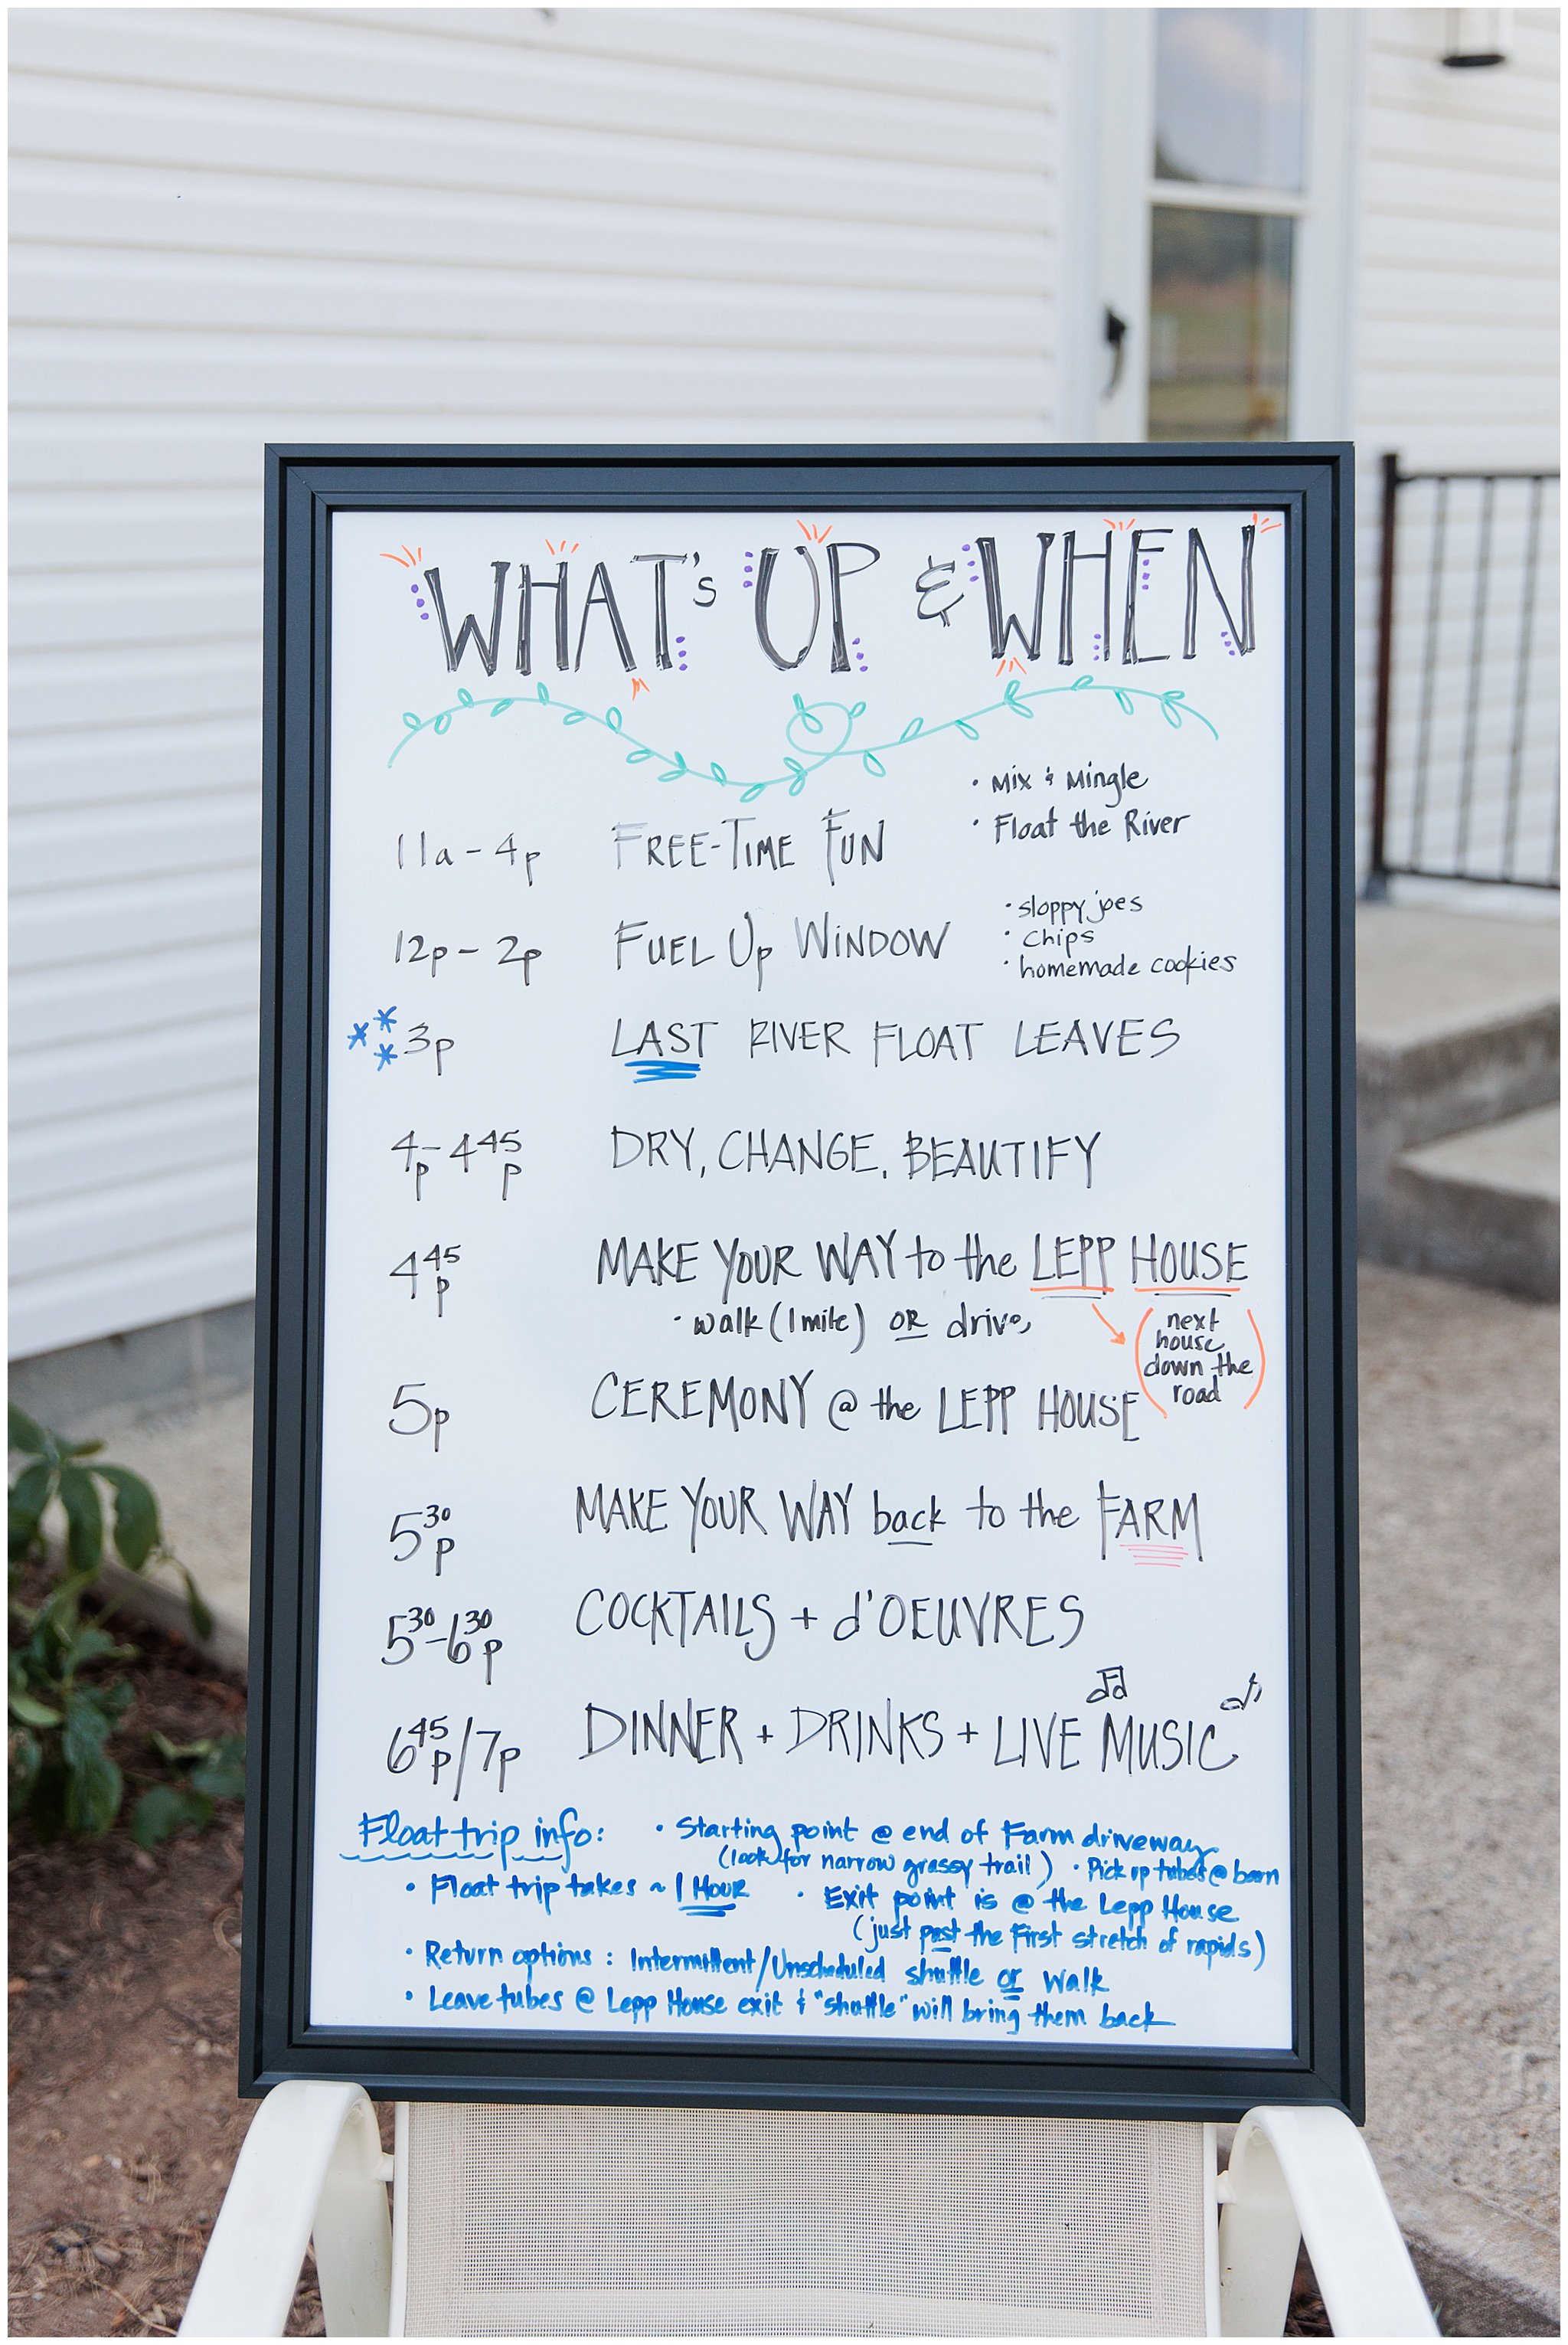 WHAT's UP & WHEN
• Mix & Mingle
• Float the River
11a - 4p FREE-TIME FUN
• sloppy joes
12p - 2p FUEL Up WINDOW • chips
• homemade cookies
*** 3p LAST RIVER FLOAT LEAVES
4p - 4 45 p DRY, CHANGE, BEAUTIFY
4 45 p MAKE YOUR WAY to the LEPP HOUSE
• walk (1 mile) OR drive
(next house down the road)
5p CEREMONY @ the LEPP HOUSE
5 30 p MAKE YOUR WAY back to the FARM
5 30 - 6 30 p COCKTAILS + d'OEUVRES
6 45 p / 7p DINNER + DRINKS + LIVE MUSIC
Float trip info: • Starting point @ end of Farm driveway
(look for narrow grassy trail) • Pick up tubes @ barn
• Float trip takes ~ 1 HOUR • Exit point is @ the Lepp House
(just past the First stretch of rapids)
• Return options: Intermittent/Unscheduled shuttle or walk
• Leave tubes @ Lepp House exit & "shuttle" will bring them back